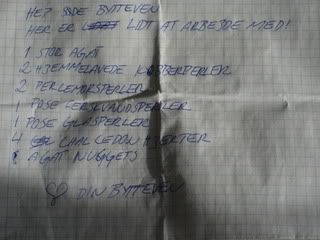 HEJ SØDE BYTTEVEN
HER ER LIDT AT ARBEJDE MED!
1 STOR AGAT
2 HJEMMELAVEDE KOBBERPERLER
2 PERLEMORSPERLER
1 POSE FERSKVANDSPERLER
1 POSE GLASPERLER
4 CHALCEDON HJERTER
AGAT NUGGETS
DIN BYTTEVEN